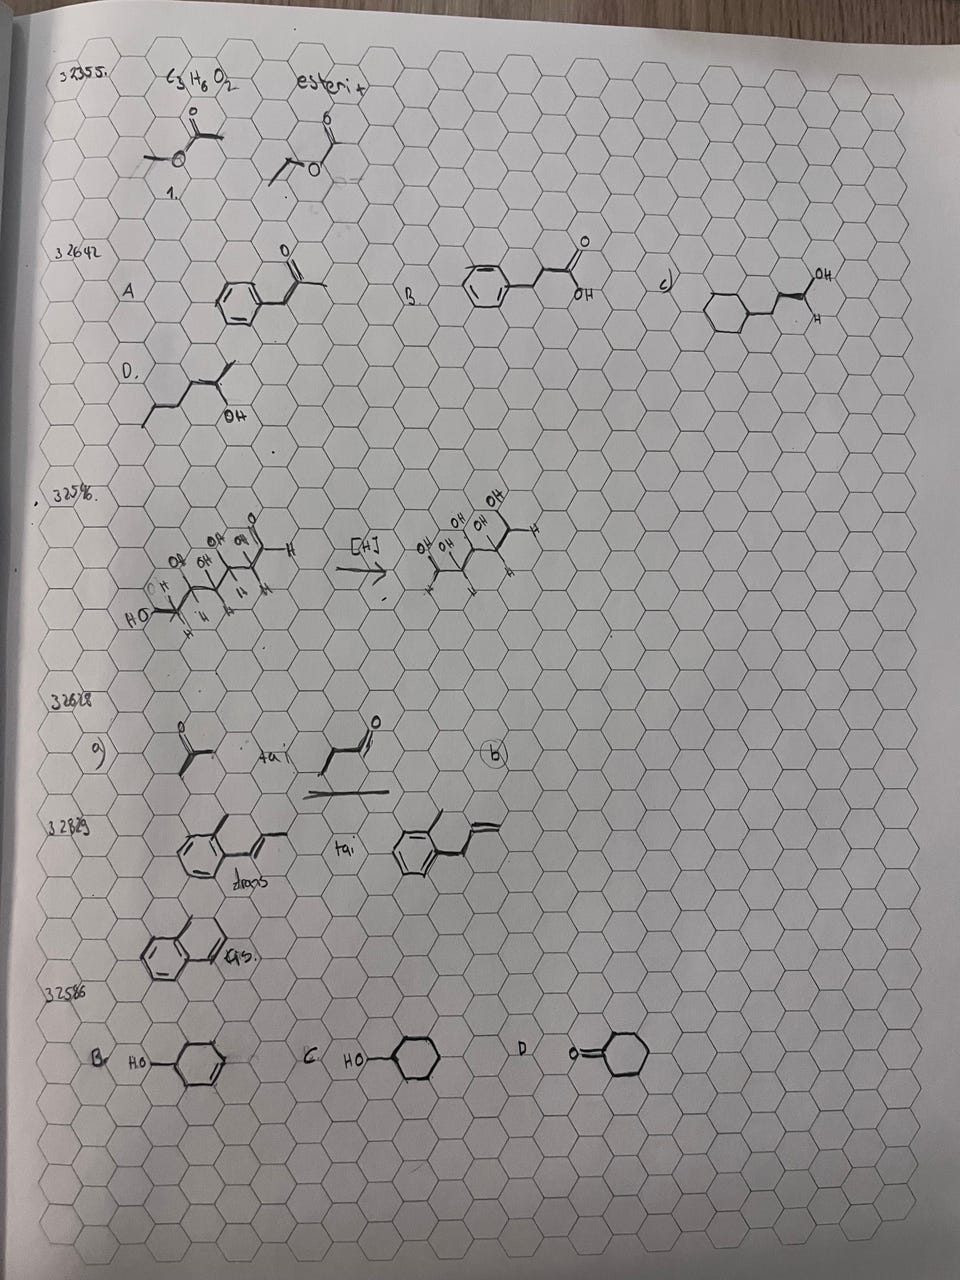 32355. C3H6O2 esterit
O O
O O
1.
32642
A O B. O OH c) OH H
D. OH
32596.
HO H OH OH OH OH O H H H H H H [H] OH OH OH OH OH H H H H
32628
a) O tai O b
32829
tai
trans
cis.
32586
B. HO C. HO D O